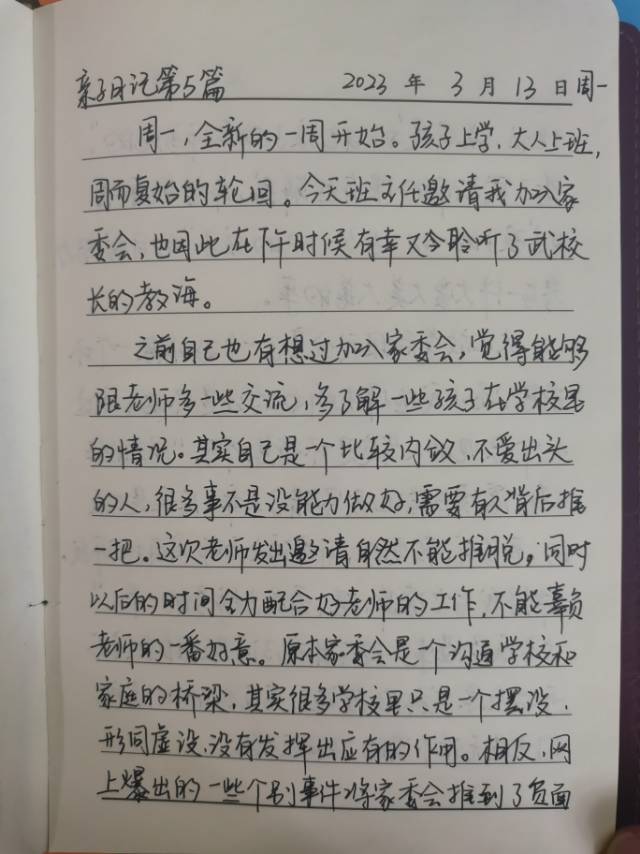 亲子日记第5篇 2023年3月13日周一
周一,全新的一周开始。孩子上学,大人上班,
周而复始的轮回。今天班主任邀请我加入家
委会,也因此在下午时候有幸又令聆听了武校
长的教海。
之前自己也有想过加入家委会,觉得能够
跟老师多一些交流,多了解一些孩子在学校里
的情况。其实自己是一个比较内敛,不爱出头
的人,很多事不是没能力做好,需要有人背后推
一把。这次老师发出邀请自然不能推脱,同时
以后的时间全力配合好老师的工作,不能辜负
老师的一番好意。原本家委会是个沟通学校和
家庭的桥梁,其实很多学校里只是一个摆设,
形同虚设,没有发挥出应有的作用。相反,网
上爆出的一些个别事件将家委会推到了负面